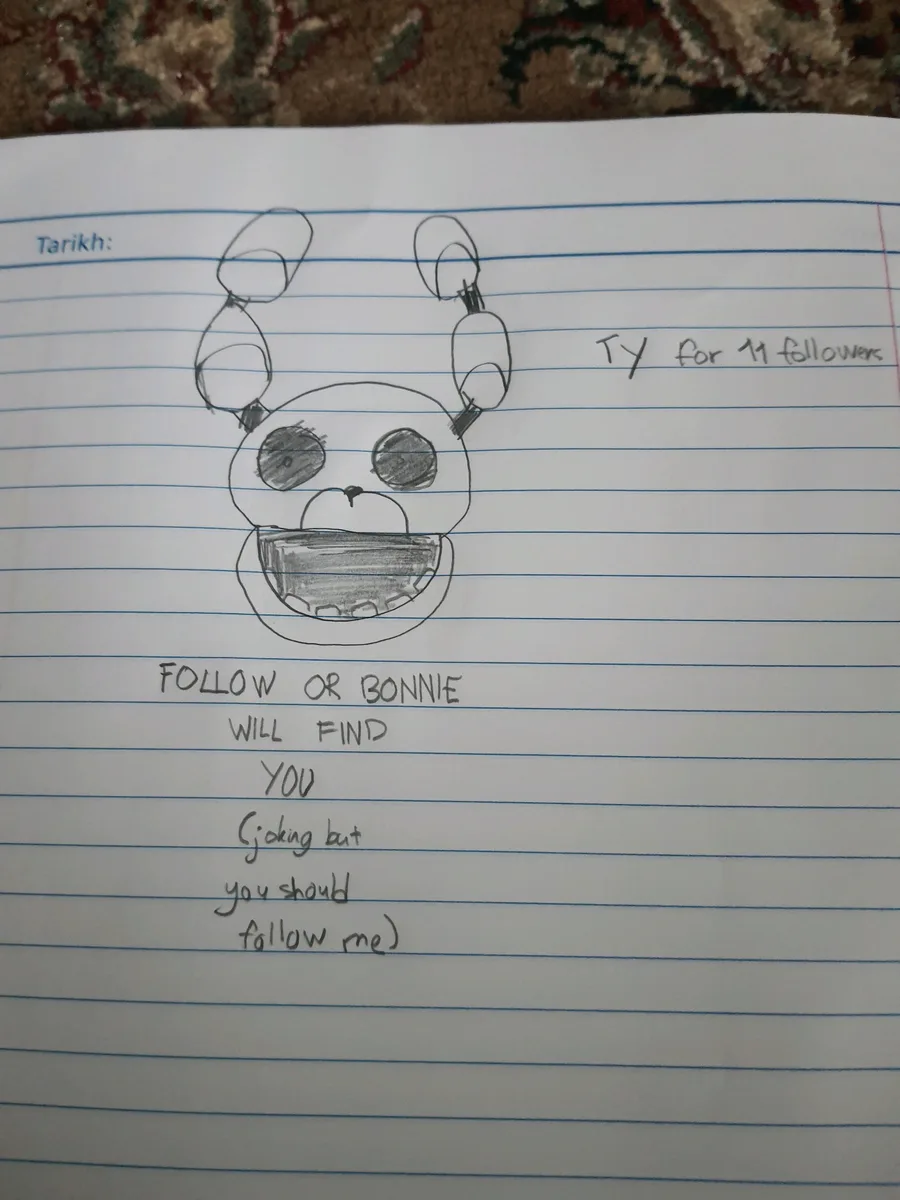 Tarikh:
Ty for 11 followers
FOLLOW OR BONNIE
WILL FIND
YOU
(joking but
you should
follow me)